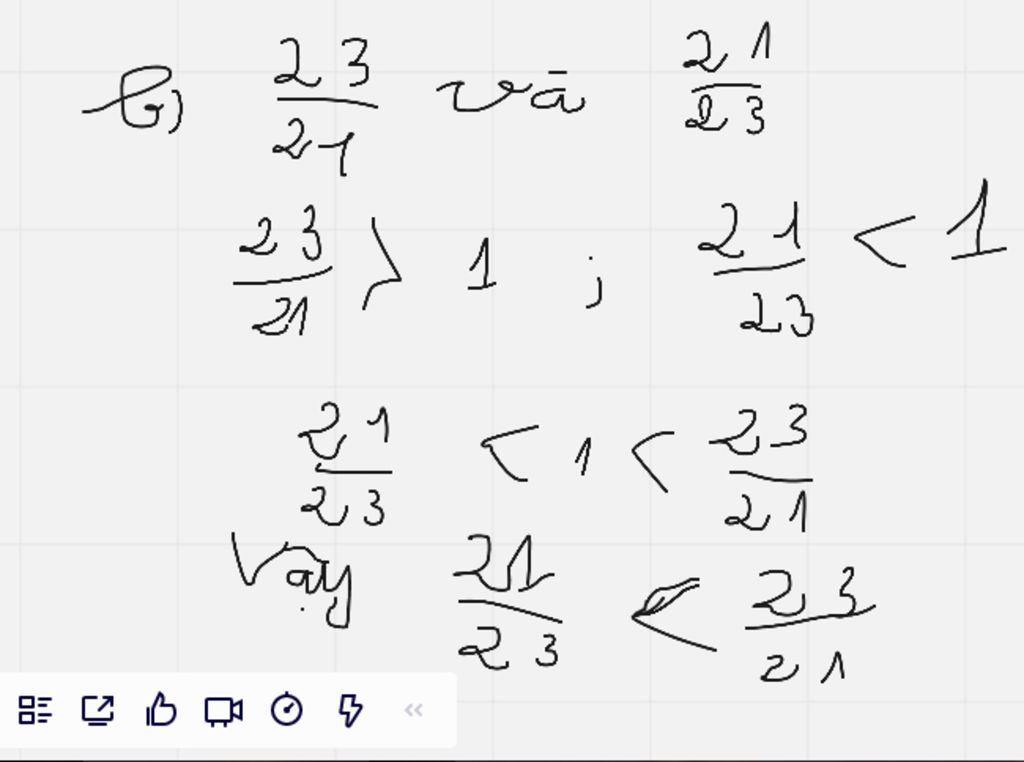 b) 23/21 và 21/23
23/21 > 1 ; 21/23 < 1
21/23 < 1 < 23/21
Vậy 21/23 < 23/21